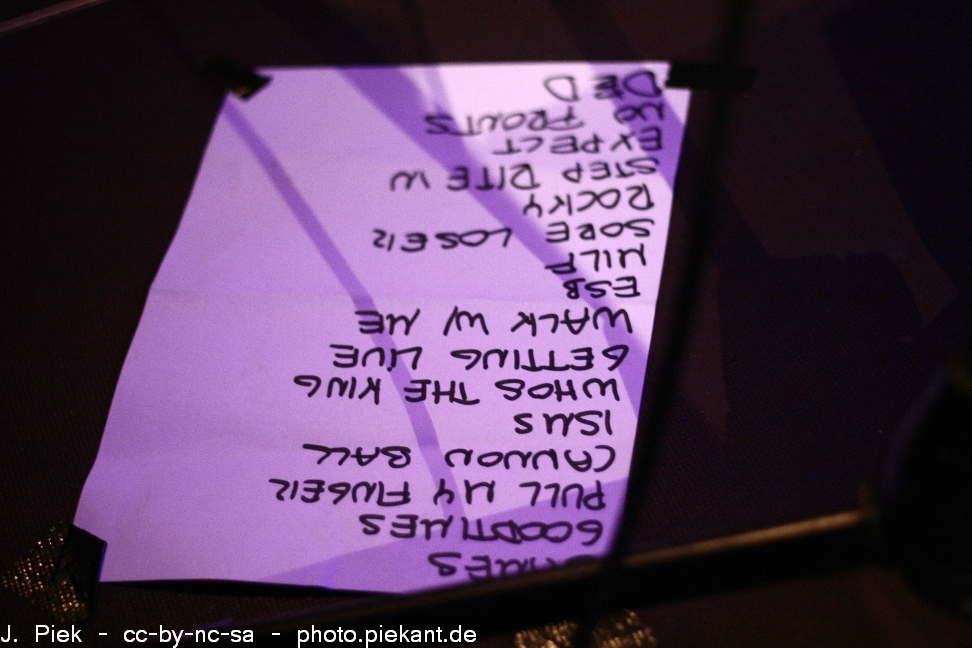 GOODTIMES
PULL MY FINGER
CANNON BALL
ISMS
WHOS THE KING
GETTING LIVE
WALK W/ ME
ESB
MILF
SORE LOSER
ROCKY
STEP RITE IN
EXPECT
NO FRONTS
DED
J. Piek - cc-by-nc-sa - photo.piekant.de